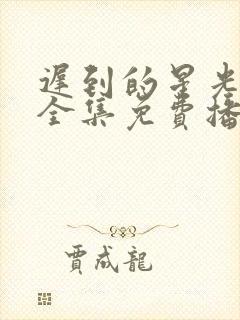 遲到的星光
全集免費播
賈成龍